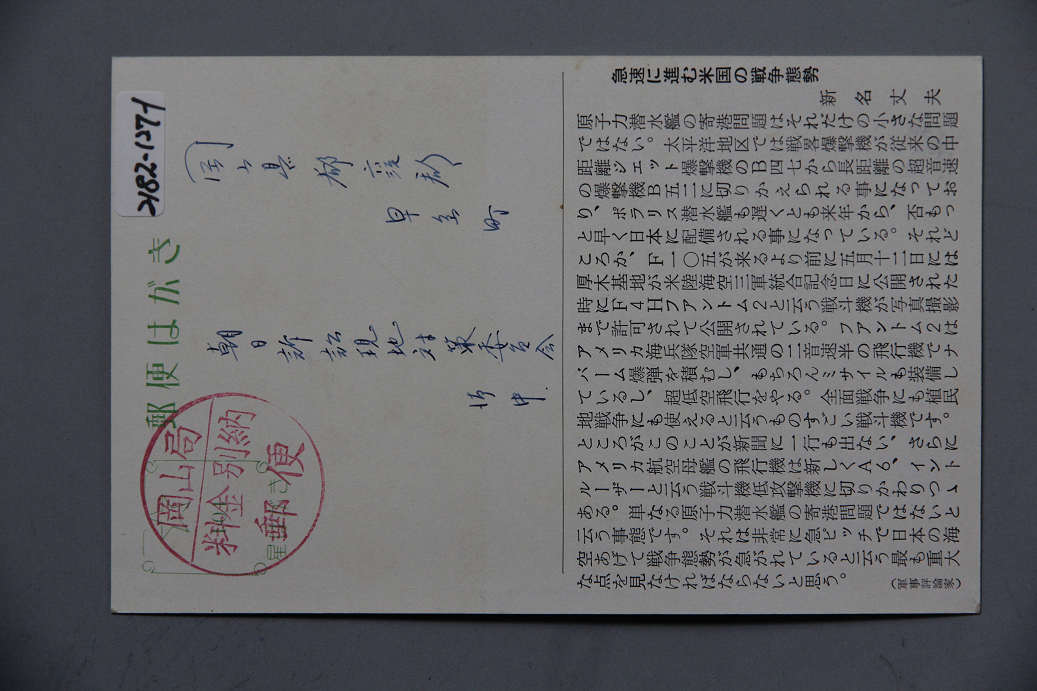 2182-127-1
郵便はがき
岡山局
料金別納
郵便
岡山県都窪郡
早島町
朝日訴訟現地対策委員会
御中
急速に進む米国の戦争態勢
新名丈夫
原子力潜水艦の寄港問題はそれだけの小さな問題
ではない。太平洋地区では戦略爆撃機が従来の中
距離ジェット爆撃機のB四七から長距離の超音速
の爆撃機B五二に切りかえられる事になってお
り、ポラリス潜水艦も遅くとも来年から、否もっ
と早く日本に配備される事になっている。それど
ころか、F一〇五が来るより前に五月十二日には
厚木基地が米陸海空三軍統合記念日に公開された
時にF4Hファントム2と云う戦斗機が写真撮影
まで許可されて公開されている。ファントム2は
アメリカ海兵隊空軍共通の二音速半の飛行機でナ
パーム爆弾を積むし、もちろんミサイルも装備し
ているし、超低空飛行をやる。全面戦争にも植民
地戦争にも使えると云うものすごい戦斗機です。
ところがこのことが新聞に一行も出ない、さらに
アメリカ航空母艦の飛行機は新しくA6、イント
ルーザーと云う戦斗機低攻撃機に切りかわりつゝ
ある。単なる原子力潜水艦の寄港問題ではないと
云う事態です。それは非常に急ピッチで日本の海
空あげて戦争態勢が急がれていると云う最も重大
な点を見なければならないと思う。
(軍事評論家)